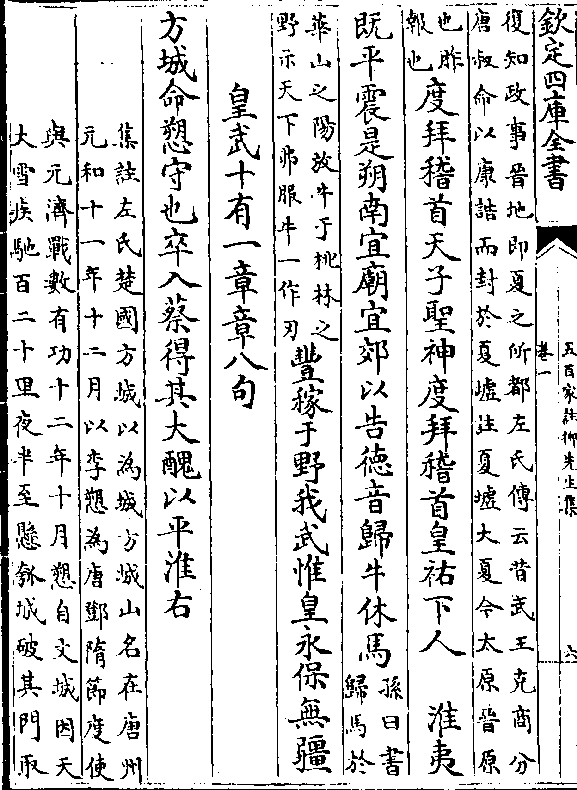 欽定四庫全書
五百家註柳先生集
卷一
六
復知政事晉地即夏之所都左氏傳云昔武王克商分
唐叔命以康誥而封於夏墟註夏墟大夏今太原晉原
也昨
報也
度拜稽首天子聖神度拜稽首皇祐下人 淮夷
既平震是朔南宜廟宜郊以告德音歸牛休馬
孫曰書
歸馬於
華山之陽放牛于桃林之
野示天下弗服牛一作刃
豐稼于野我武惟皇永保無疆
皇武十有一章章八句
方城命愬守也卒入蔡得其大醜以平淮右
集註左氏楚國方城以為城方城山名在唐州
元和十一年十二月以李愬為唐鄧隋節度使
與元濟戰數有功十二年十月愬自文城因天
大雪疾馳百二十里夜半至懸瓠城破其門取